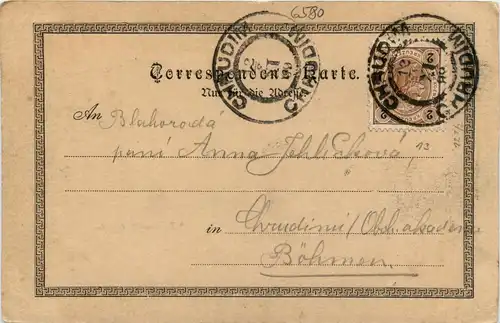 6580
CHRUDIM
CHRUDIM
Correspondenz-Karte.
Nur für die Adresse.
An Blahorodá
paní Anna Jehličková
13
in Chrudimi / Obch. akademie
Böhmen